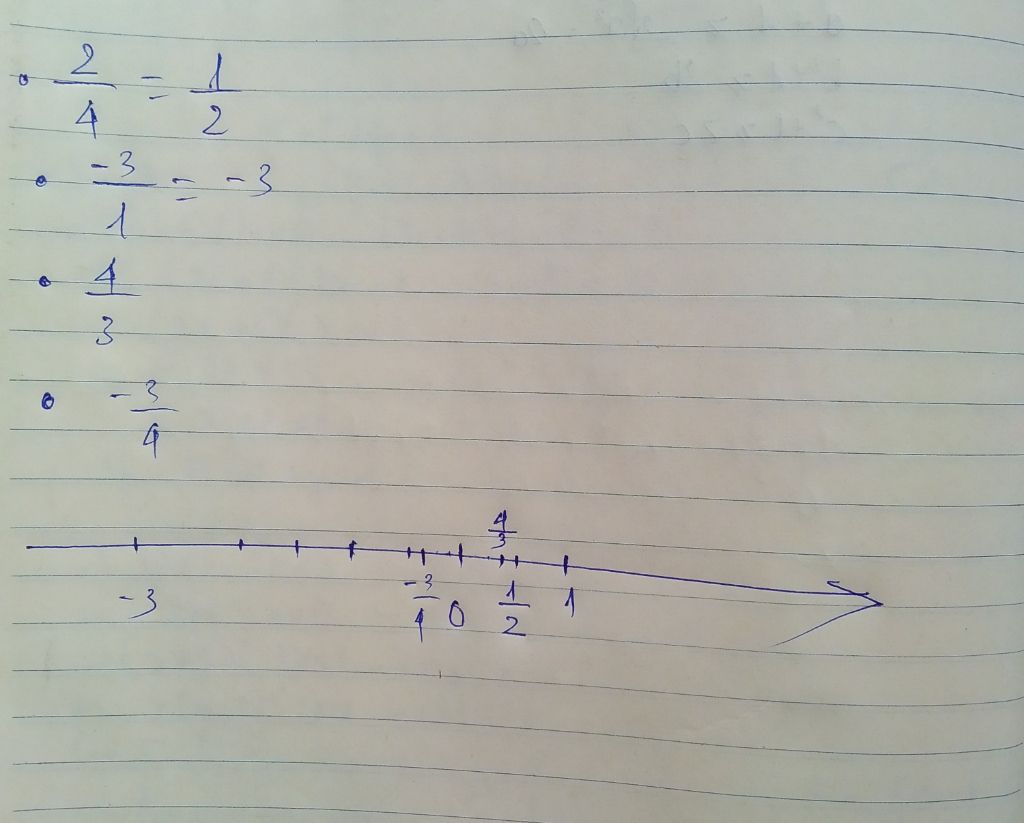 • 2/4 = 1/2
• -3/1 = -3
• 4/3
• -3/4
4/3
-3 -3/4 0 1/2 1